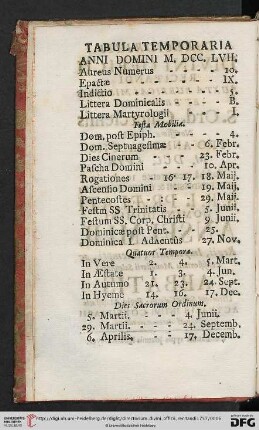 TABULA TEMPORARIA
ANNI DOMINI M. DCC. LVII.
Aureus Numerus - - - 10.
Epactæ - - - - IX.
Indictio - - - - 5.
Littera Dominicalis - - B.
Littera Martyrologii - - I.
Festa Mobilia.
Dom. post Epiph. - - - 4.
Dom. Septuagesimæ - 6. Febr.
Dies Cinerum - - 23. Febr.
Pascha Domini - - 10. Apr.
Rogationes - 16. 17. 18. Maij.
Ascensio Domini - - 19. Maij.
Pentecostes - - - 29. Maij.
Festm SS Trinitatis - - 5. Junii.
Festum SS. Corp. Christi 9. Junii.
Dominicæ post Pent. 25.
Dominica I. Adventus 27. Nov.
Quatuor Tempora.
In Vere 2. 4. 5. Mart.
In Æstate 1. 3. 4. Jun.
In Autumo 21. 23. 24. Sept.
In Hyeme 14. 16. 17. Dec.
Dies Sacrorum Ordinum.
5. Martii. - - 4. Junii.
29. Martii. - - 24. Septemb.
6. Aprilis. - - 17. Decemb.
DFG